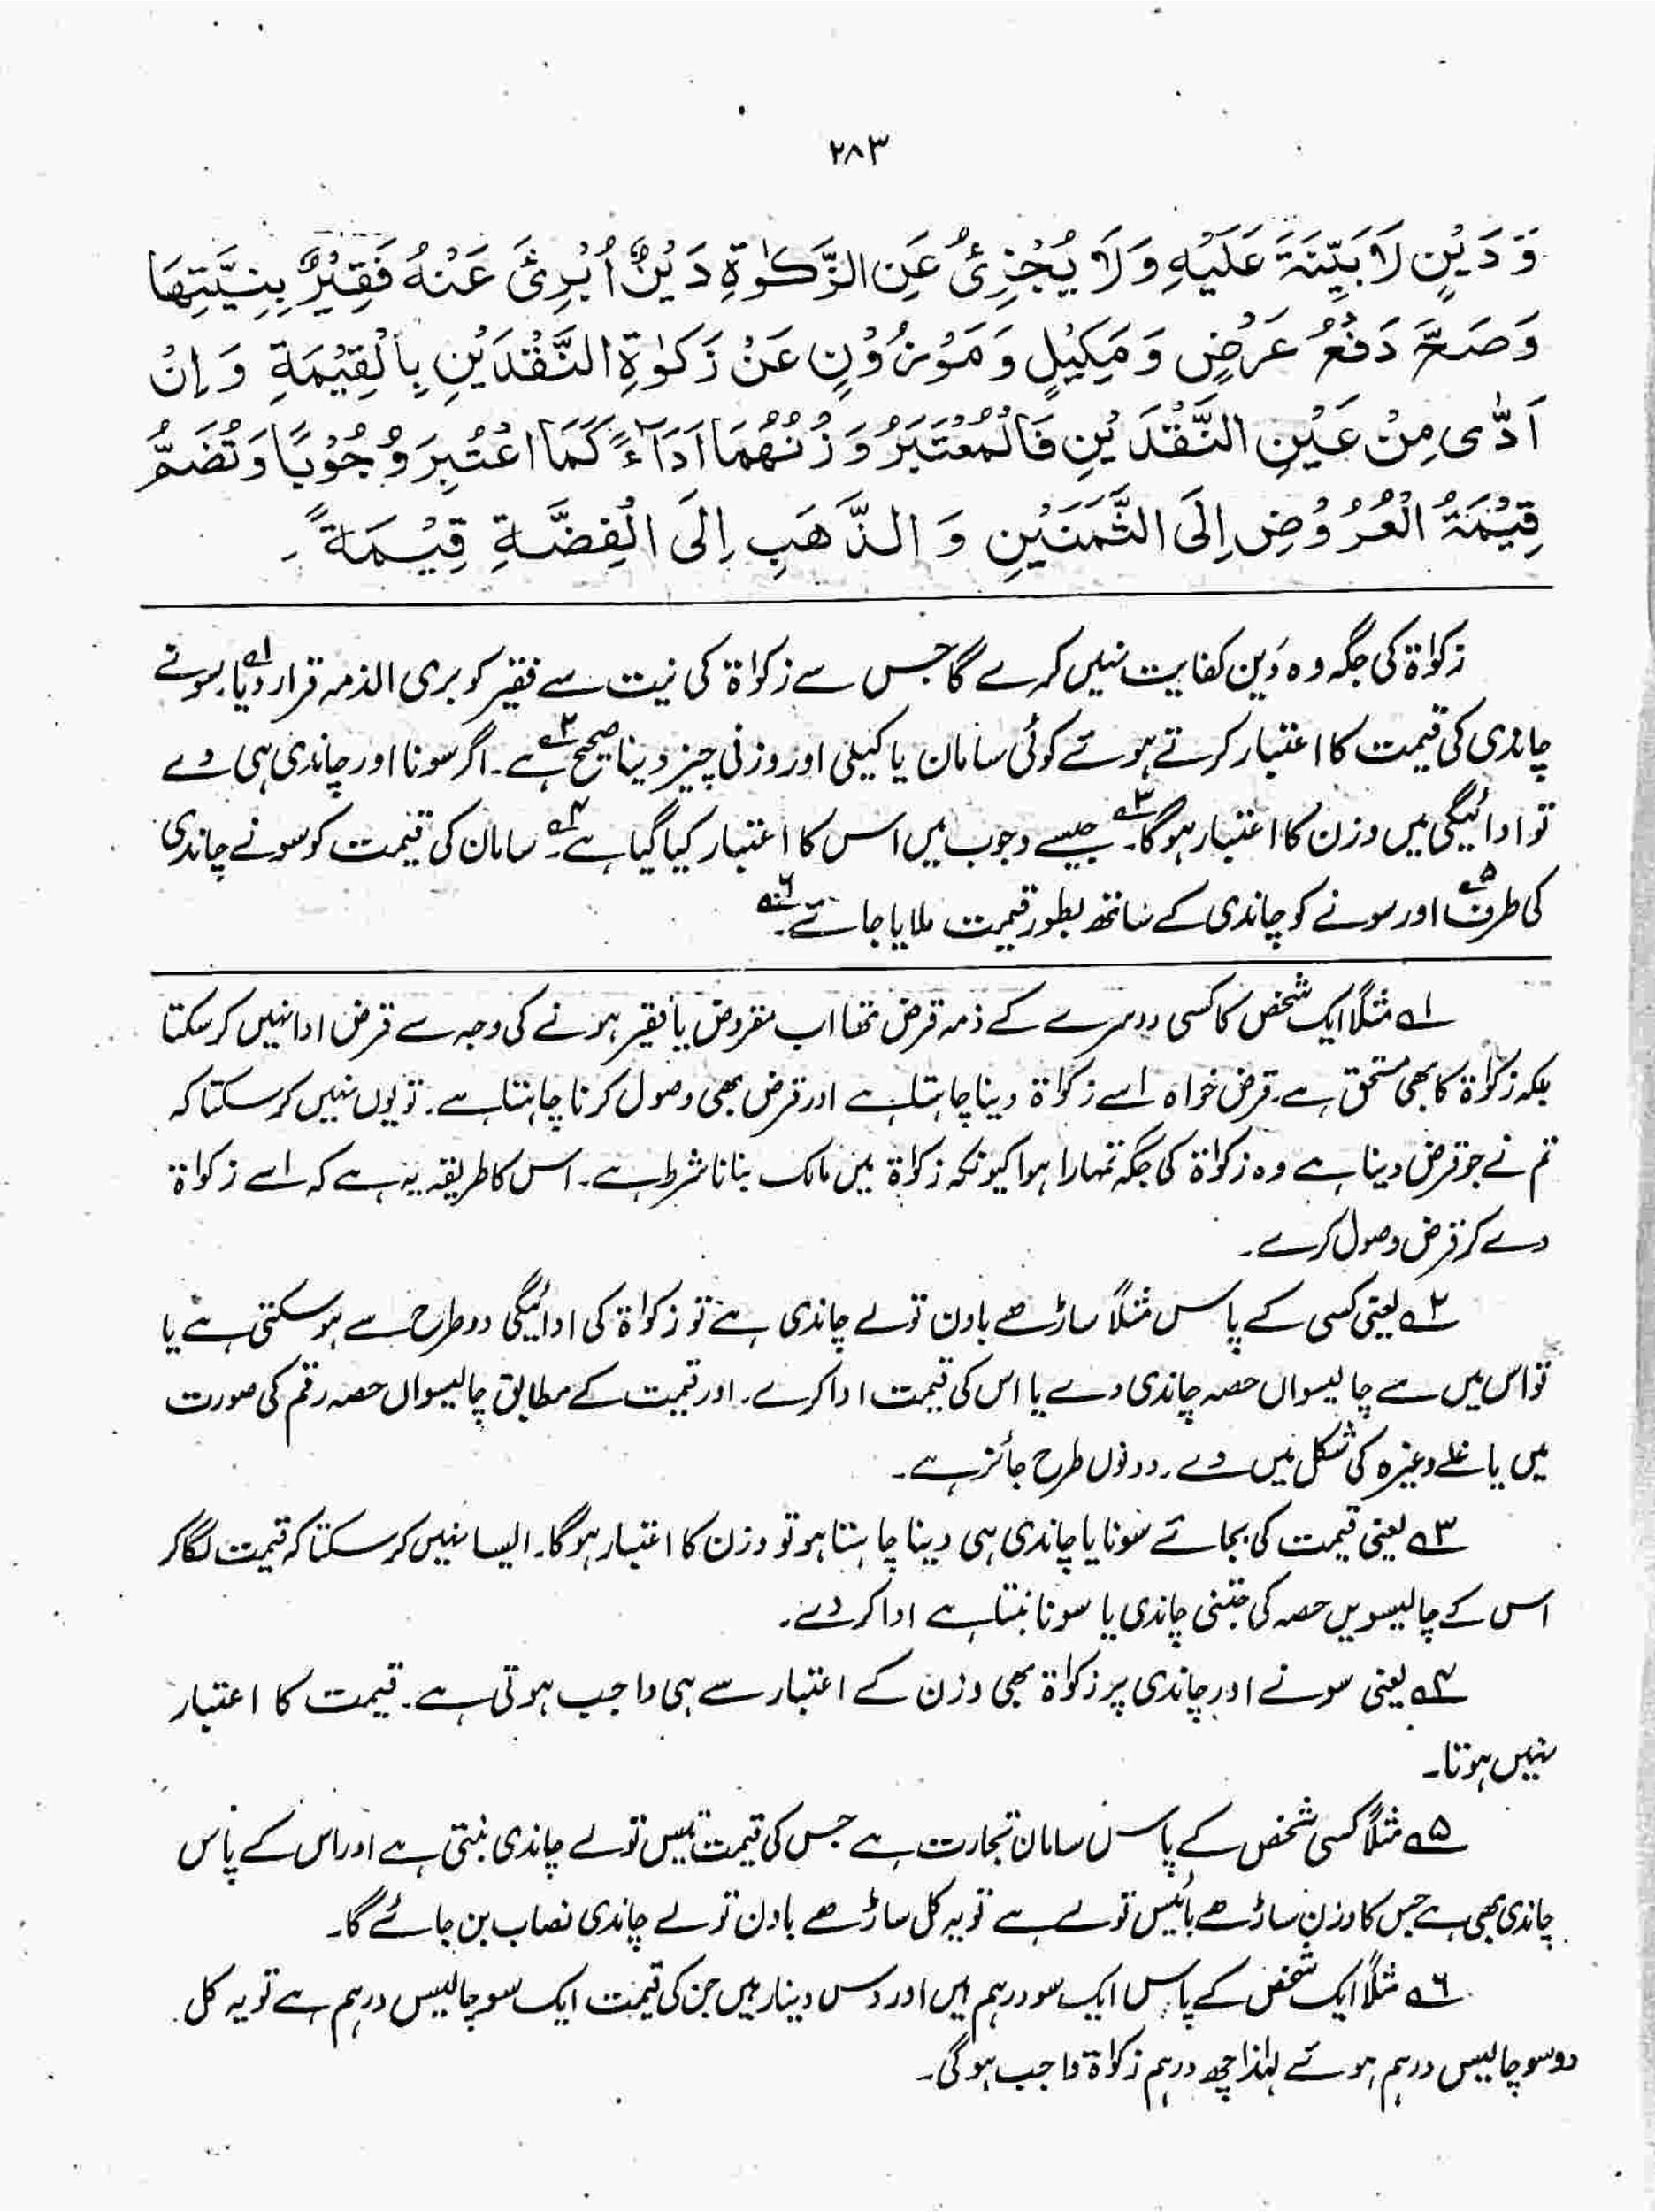 ۲۸۳
وَ دَيْنٍ لَا بَيِّنَةَ عَلَيْهِ وَ لَا يُجْزِئُ عَنِ الزَّكٰوةِ دَيْنٌ اُبْرِئَ عَنْهُ فَقِيْرٌ بِنِيَّتِهَا
وَ صَحَّ دَفْعُ عَرْضٍ وَ مَكِيْلٍ وَ مَوْزُوْنٍ عَنْ زَكٰوةِ النَّقْدَيْنِ بِالْقِيْمَةِ وَ اِنْ
اَدّٰى مِنْ عَيْنِ النَّقْدَيْنِ فَالْمُعْتَبَرُ وَزْنُهُمَا اَدَآءً كَمَا اعْتُبِرَ وُجُوْبًا وَ تُضَمُّ
قِيْمَةُ الْعُرُوْضِ اِلَى الثَّمَنَيْنِ وَ الذَّهَبِ اِلَى الْفِضَّةِ قِيْمَةً ۔
زکوٰۃ کی جگہ وہ دَین کفایت نہیں کرے گا جس سے زکوٰۃ کی نیت سے فقیر کو بری الذمہ قرار دیا۔۱؎ سونے
چاندی کی قیمت کا اعتبار کرتے ہوئے کوئی سامان یا کیلی اور وزنی چیز دینا صحیح ہے۔۲؎ اگر سونا اور چاندی ہی دے
تو ادائیگی میں وزن کا اعتبار ہوگا۔۳؎ جیسے وجوب میں اس کا اعتبار کیا گیا ہے۔۴؎ سامان کی قیمت کو سونے چاندی
کی طرف۵؎ اور سونے کو چاندی کے ساتھ بطور قیمت ملایا جائے۔۶؎
۱؎ مثلاً ایک شخص کا کسی دوسرے کے ذمہ قرض تھا اب مقروض یا فقیر ہونے کی وجہ سے قرض ادا نہیں کرسکتا
بلکہ زکوٰۃ کا بھی مستحق ہے۔ قرض خواہ اسے زکوٰۃ دینا چاہتا ہے اور قرض بھی وصول کرنا چاہتا ہے۔ تو یوں نہیں کرسکتا کہ
تم نے جو قرض دینا ہے وہ زکوٰۃ کی جگہ تمہارا ہوا کیونکہ زکوٰۃ میں مالک بنانا شرط ہے۔ اس کا طریقہ یہ ہے کہ اسے زکوٰۃ
دے کر قرض وصول کرے۔
۲؎ یعنی کسی کے پاس مثلاً ساڑھے باون تولے چاندی ہے تو زکوٰۃ کی ادائیگی دو طرح سے ہوسکتی ہے یا
تو اس میں سے چالیسواں حصہ چاندی دے یا اس کی قیمت ادا کرے۔ اور قیمت کے مطابق چالیسواں حصہ رقم کی صورت
میں یا غلے وغیرہ کی شکل میں دے۔ دونوں طرح جائز ہے۔
۳؎ یعنی قیمت کی بجائے سونا یا چاندی ہی دینا چاہتا ہو تو وزن کا اعتبار ہوگا۔ ایسا نہیں کرسکتا کہ قیمت لگا کر
اس کے چالیسویں حصہ کی جتنی چاندی یا سونا بنتا ہے ادا کردے۔
۴؎ یعنی سونے اور چاندی پر زکوٰۃ بھی وزن کے اعتبار سے ہی واجب ہوتی ہے۔ قیمت کا اعتبار
نہیں ہوتا۔
۵؎ مثلاً کسی شخص کے پاس سامان تجارت ہے جس کی قیمت تیس تولے چاندی بنتی ہے اور اس کے پاس
چاندی بھی ہے جس کا وزن ساڑھے بائیس تولے ہے تو یہ کل ساڑھے باون تولے چاندی نصاب بن جائے گا۔
۶؎ مثلاً ایک شخص کے پاس ایک سو درہم ہیں اور دس دینار ہیں جن کی قیمت ایک سو چالیس درہم ہے تو یہ کل
دو سو چالیس درہم ہوئے لہٰذا چھ درہم زکوٰۃ واجب ہوگی۔